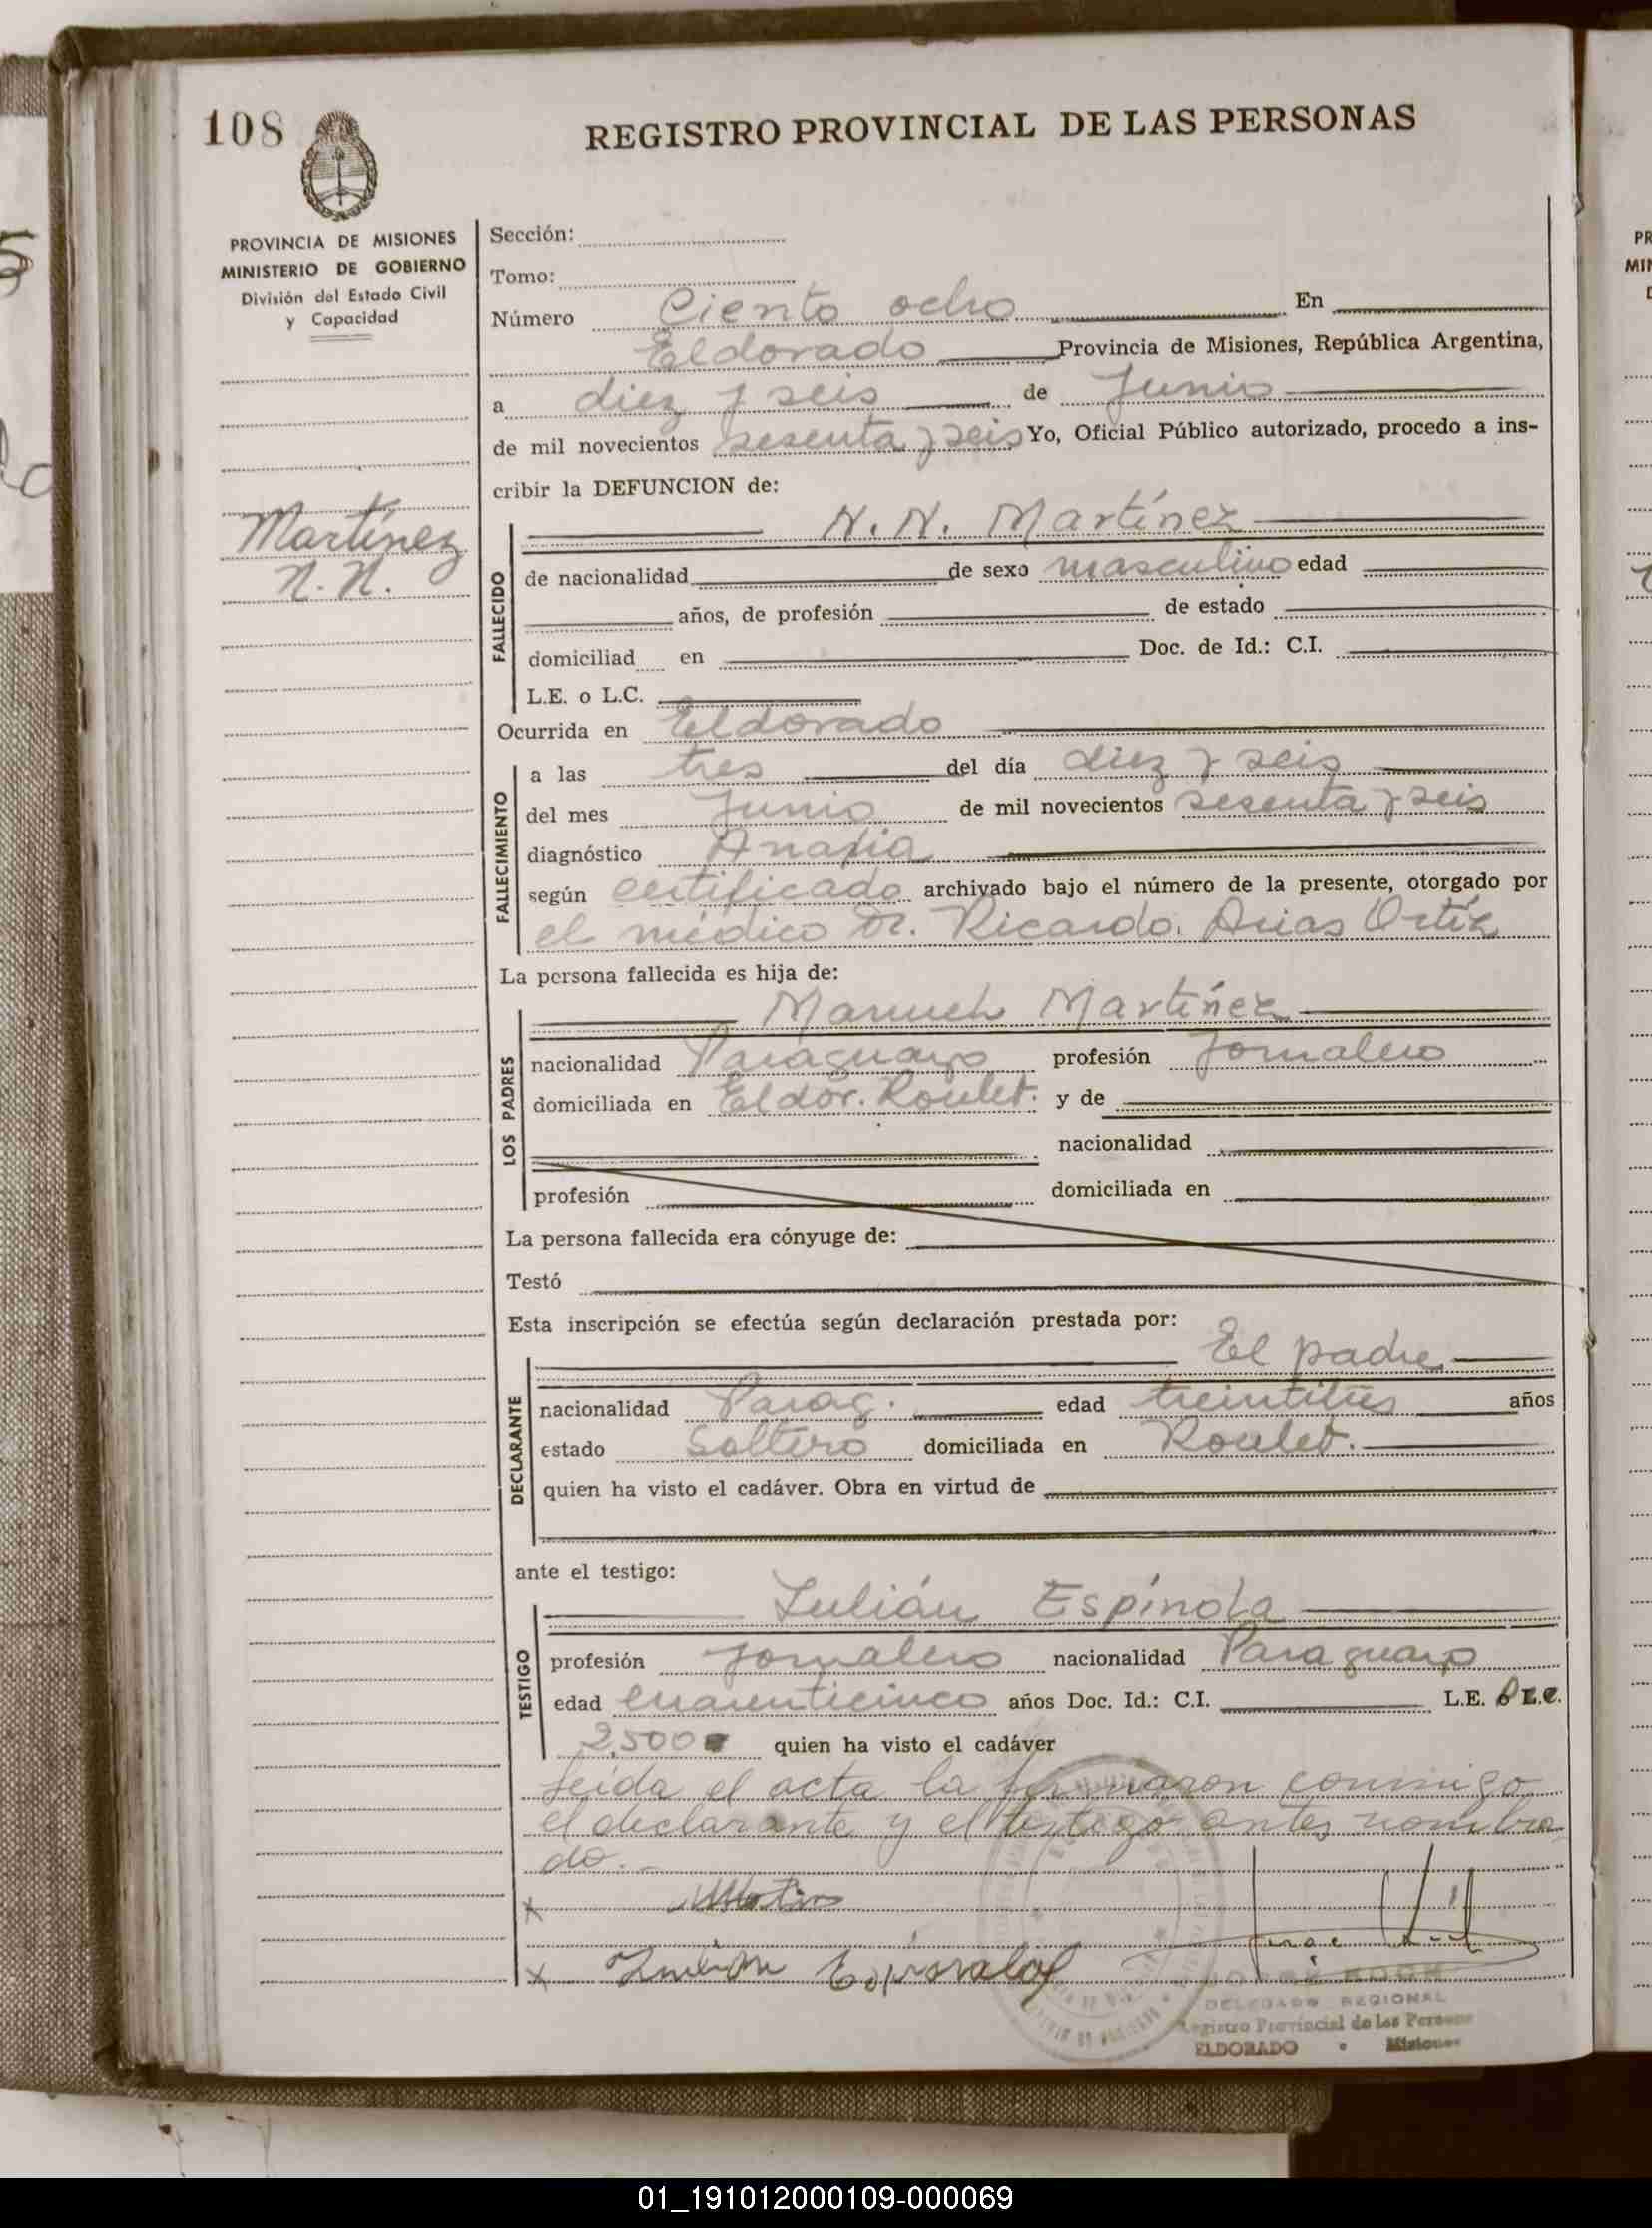 108
REGISTRO PROVINCIAL DE LAS PERSONAS
PROVINCIA DE MISIONES
MINISTERIO DE GOBIERNO
División del Estado Civil
y Capacidad
Martínez
N. N.
Sección:
Tomo:
Número Ciento ocho En
Eldorado Provincia de Misiones, República Argentina,
a diez y seis de Junio
de mil novecientos sesenta y seis Yo, Oficial Público autorizado, procedo a ins-
cribir la DEFUNCION de:
FALLECIDO
N. N. Martínez
de nacionalidad de sexo masculino edad
años, de profesión de estado
domiciliad en Doc. de Id.: C.I.
L.E. o L.C.
Ocurrida en Eldorado
FALLECIMIENTO
a las tres del día diez y seis
del mes Junio de mil novecientos sesenta y seis
diagnóstico
según certificado archivado bajo el número de la presente, otorgado por
el médico Dr. Ricardo Arias Ortíz
La persona fallecida es hija de:
LOS PADRES
Manuel Martínez
nacionalidad Paraguayo profesión Jornalero
domiciliada en Eldor. Roulet. y de
nacionalidad
profesión domiciliada en
La persona fallecida era cónyuge de:
Testó
Esta inscripción se efectúa según declaración prestada por:
DECLARANTE
El padre
nacionalidad Parag. edad treintitrés años
estado soltero domiciliada en Roulet.
quien ha visto el cadáver. Obra en virtud de
ante el testigo:
TESTIGO
Julián Espínola
profesión Jornalero nacionalidad Paraguayo
edad cuarenticinco años Doc. Id.: C.I. L.E. o L.C.
quien ha visto el cadáver
Leída el acta la firmaron conmigo
el declarante y el testigo antes nombra
do.-
x
x Julian Espinola
DELEGADO REGIONAL
Registro Provincial de las Personas
ELDORADO • Misiones
PR
MIN
01_191012000109-000069